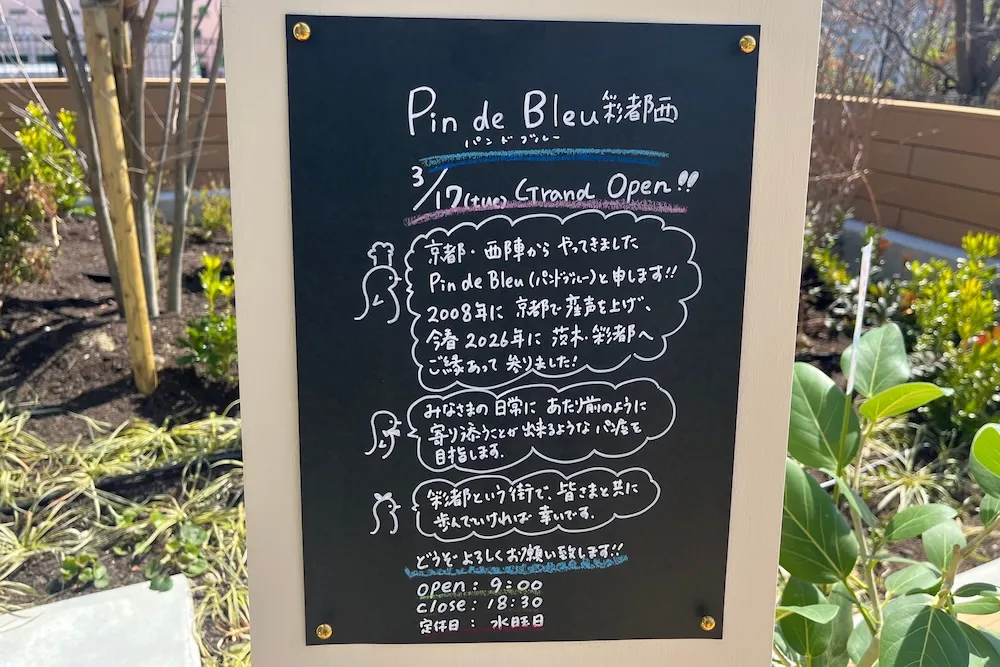 Pin de Bleu 彩都西
パンドブルー
3/17(tue) Grand Open!!
京都・西陣から やってきました
Pin de Bleu (パンドブルー)と申します!!
2008年に 京都で産声を上げ、
今春 2026年に 茨木・彩都へ
ご縁あって 参りました!
みなさまの 日常に あたり前のように
寄り添うことが 出来るような パン屋を
目指します。
彩都という街で、皆さまと共に
歩んでいければ 幸いです。
どうぞ よろしくお願い致します!!
open : 9:00
close : 18:30
定休日 : 水曜日